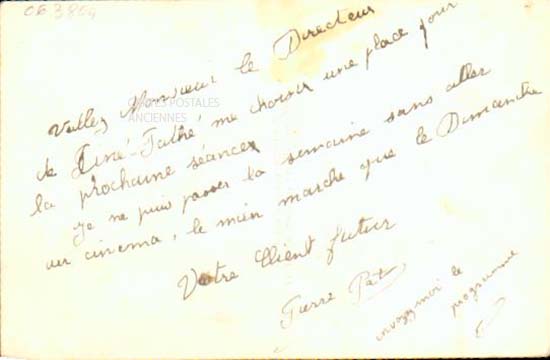 063804
Veuillez Monsieur le Directeur
de Ciné-Pathé me choisir une place pour
la prochaine séance
je ne puis passer la semaine sans aller
au cinema, le mien marche que le Dimanche
Votre Client futur
Pierre
envoyez moi le
programme
CARTES POSTALES
ANCIENNES